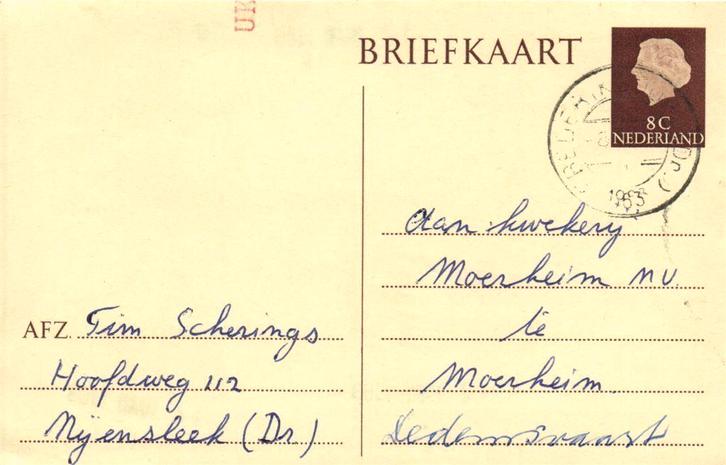 BRIEFKAART
8C
NEDERLAND
1963
Aan kwekery
Moerheim N.V.
te
Moerheim
Dedemsvaart
AFZ. Tim Scherings
Hoofdweg 112
Nijensleek (Dr)